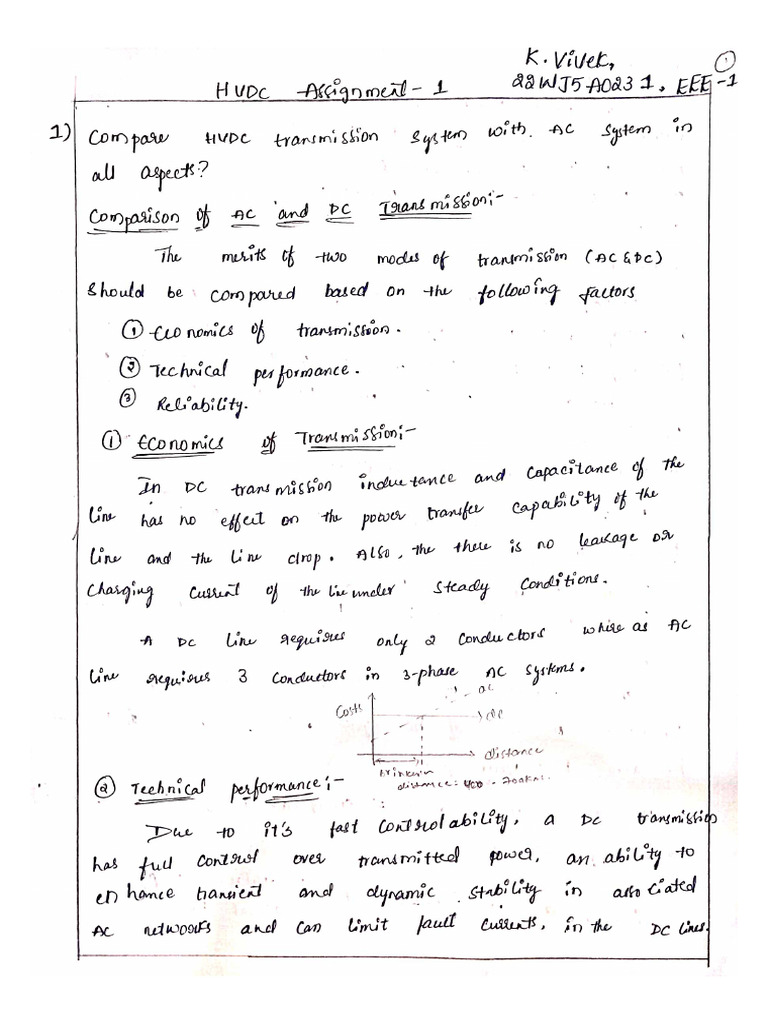 K. Vivek, 1
HVDC Assignment - 1 22WJ5A0231, EEE-1
1) Compare HVDC transmission System with AC System in
all aspects?
Comparison of AC and DC Transmission:-
The merits of two modes of transmission (AC & DC)
Should be compared based on the following factors
① Economics of transmission.
② Technical performance.
③ Reliability.
① Economics of Transmission:-
In DC transmission inductance and capacitance of the
line has no effect on the power transfer capability of the
line and the line drop. Also, the there is no leakage or
charging current of the line under steady conditions.
A DC line requires only 2 conductors where as AC
line requires 3 conductors in 3-phase AC systems.
ac
Costs
dc
distance
distance: 400 - 700km.
② Technical performance:-
Due to it's fast controlability, a DC transmission
has full control over transmitted power, an ability to
enhance transient and dynamic stability in associated
AC networks and can limit fault currents, in the DC lines.